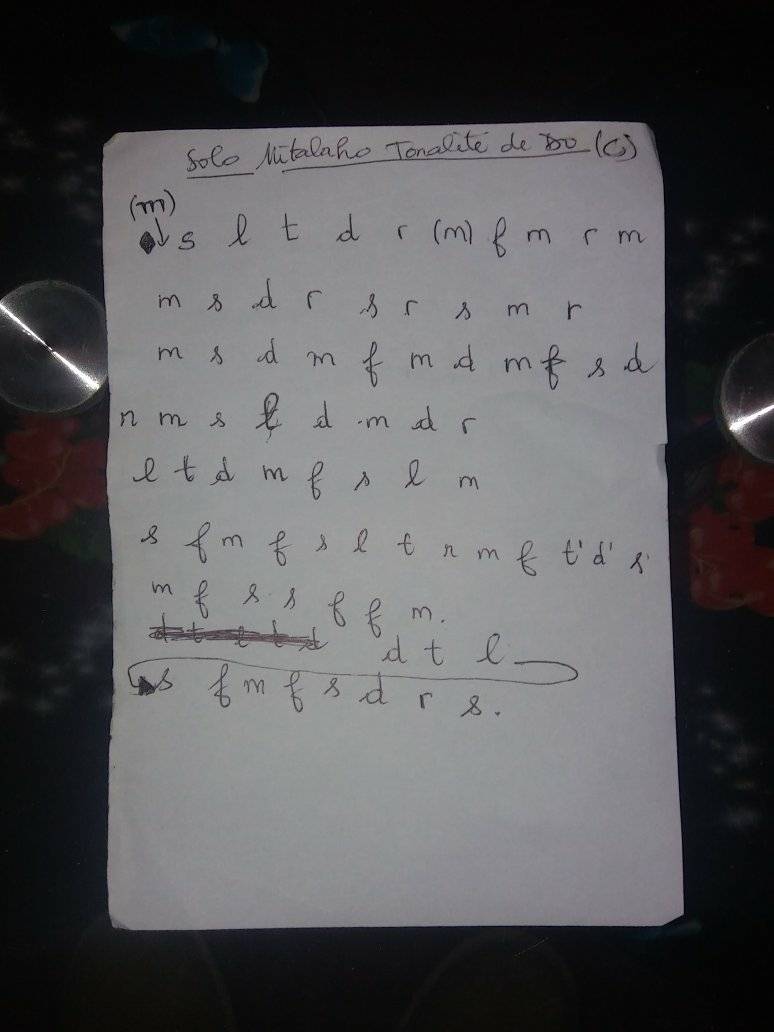 Solo Mitalaho Tonalité de Do (C)
(m)
↓ s l t d r (m) f m r m
m s d r s r s m r
m s d m f m d m f s d
r m s l d m d r
l t d m f s l m
s f m f s l t r m f t' d' s'
m f s s f f m.
d t l
s f m f s d r s.